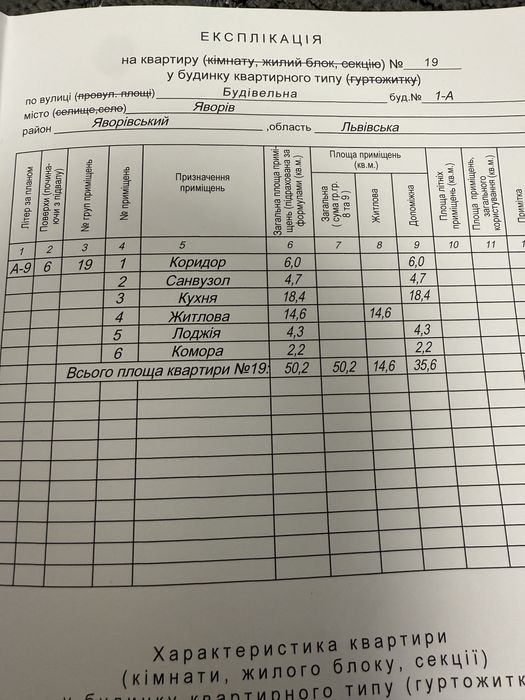 ЕКСПЛІКАЦІЯ
на квартиру (кімнату, жилий блок, секцію) № 19
у будинку квартирного типу (гуртожитку)
по вулиці (провул. площі) Будівельна буд.№ 1-А
місто (селище,село) Яворів
район Яворівський ,область Львівська
Літер за планом | Поверхи (починаючи з підвалу) | № груп приміщень | № приміщень | Призначення приміщень | Загальна площа приміщень (підрахована за формулами (кв.м.) | Площа приміщень (кв.м.) | Загальна (сума гр.гр. 8 та 9) | Житлова | Допоміжна | Площа літніх приміщень (кв.м.) | Площа приміщень, загального користування (кв.м.) | Примітка
1 2 3 4 5 6 7 8 9 10 11 1
А-9 6 19 1 Коридор 6,0 6,0
2 Санвузол 4,7 4,7
3 Кухня 18,4 18,4
4 Житлова 14,6 14,6
5 Лоджія 4,3 4,3
6 Комора 2,2 2,2
Всього площа квартири №19: 50,2 50,2 14,6 35,6
Характеристика квартири
(кімнати, жилого блоку, секції)
у будинку квартирного типу (гуртожитк